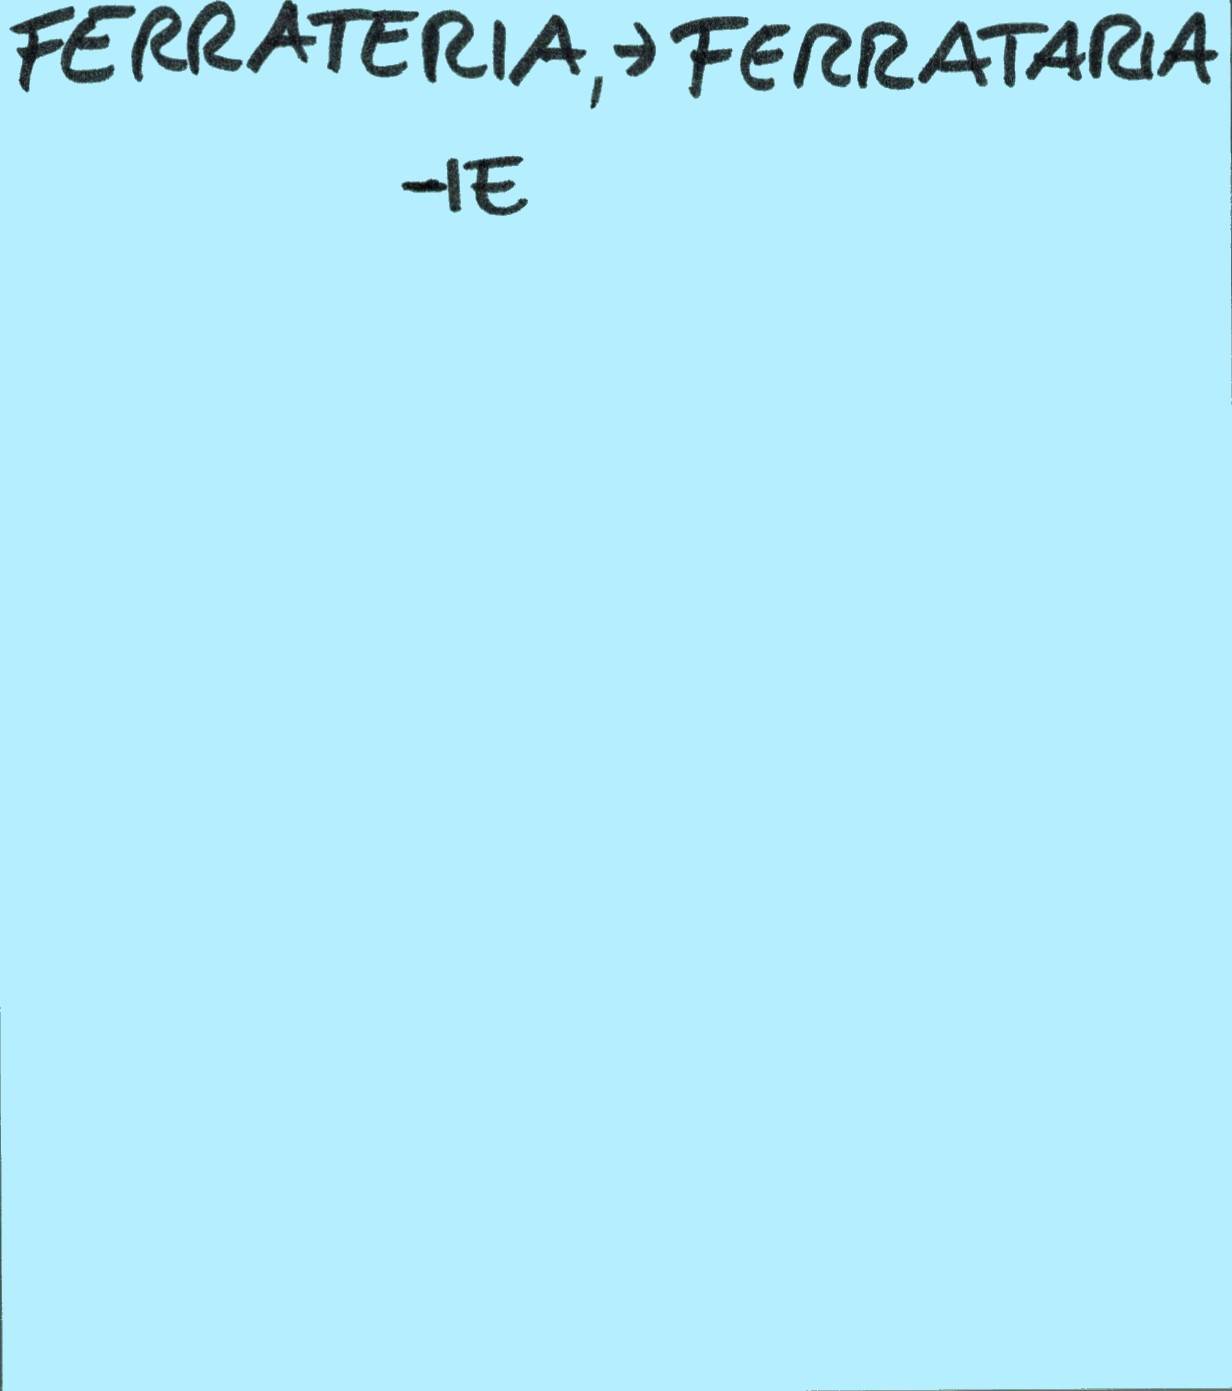 FERRATERIA, → FERRATARIA
-IE